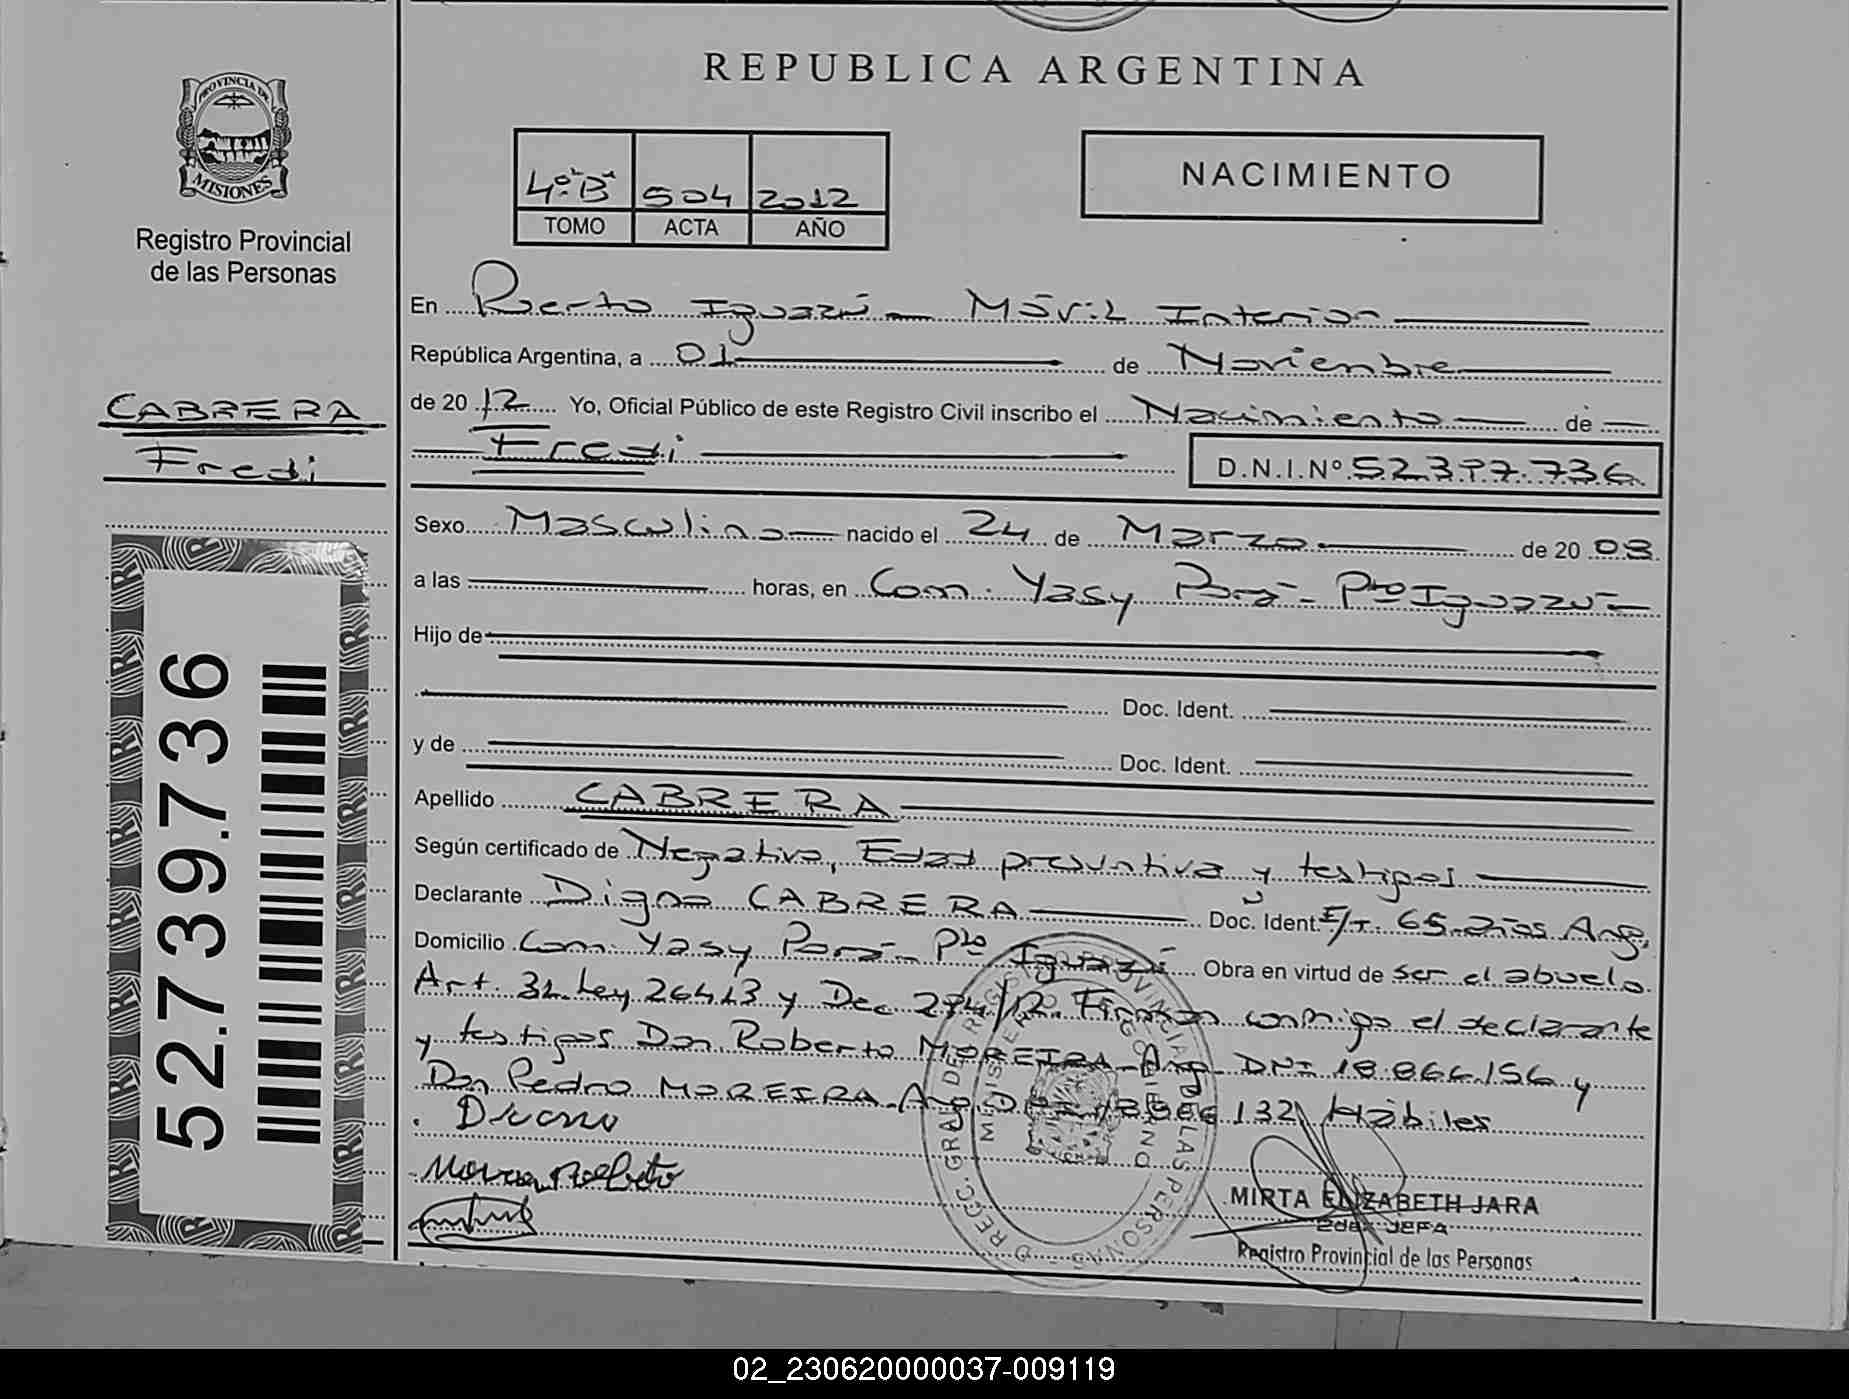 REPUBLICA ARGENTINA
PROVINCIA DE
MISIONES
Registro Provincial
de las Personas
CABRERA
Fredi
52.739.736
4º"B" 504 2012
TOMO ACTA AÑO
NACIMIENTO
En Puerto Iguazú - Móvil Interior
República Argentina, a 01 de Noviembre
de 2012 Yo, Oficial Público de este Registro Civil inscribo el Nacimiento de
Fredi D.N.I.Nº 52.397.736
Sexo Masculino nacido el 24 de Marzo de 2008
a las horas, en Com. Yasy Porá - Pto Iguazú
Hijo de
Doc. Ident.
y de Doc. Ident.
Apellido CABRERA
Según certificado de Negativo, Edad presuntiva y testigos
Declarante Digno CABRERA Doc. Ident. E/T. 65 años Arg.
Domicilio Com. Yasy Porá - Pto Iguazú Obra en virtud de ser el abuelo.
Art. 31 Ley 26413 y Dec 274/12. Firman conmigo el declarante
y testigos Don Roberto MOREIRA Arg DNI 18.866.156 y
Don Pedro MOREIRA Arg. DNI 132 Hábiles
MIRTA ELIZABETH JARA
JEFA
Registro Provincial de las Personas
02_230620000037-009119